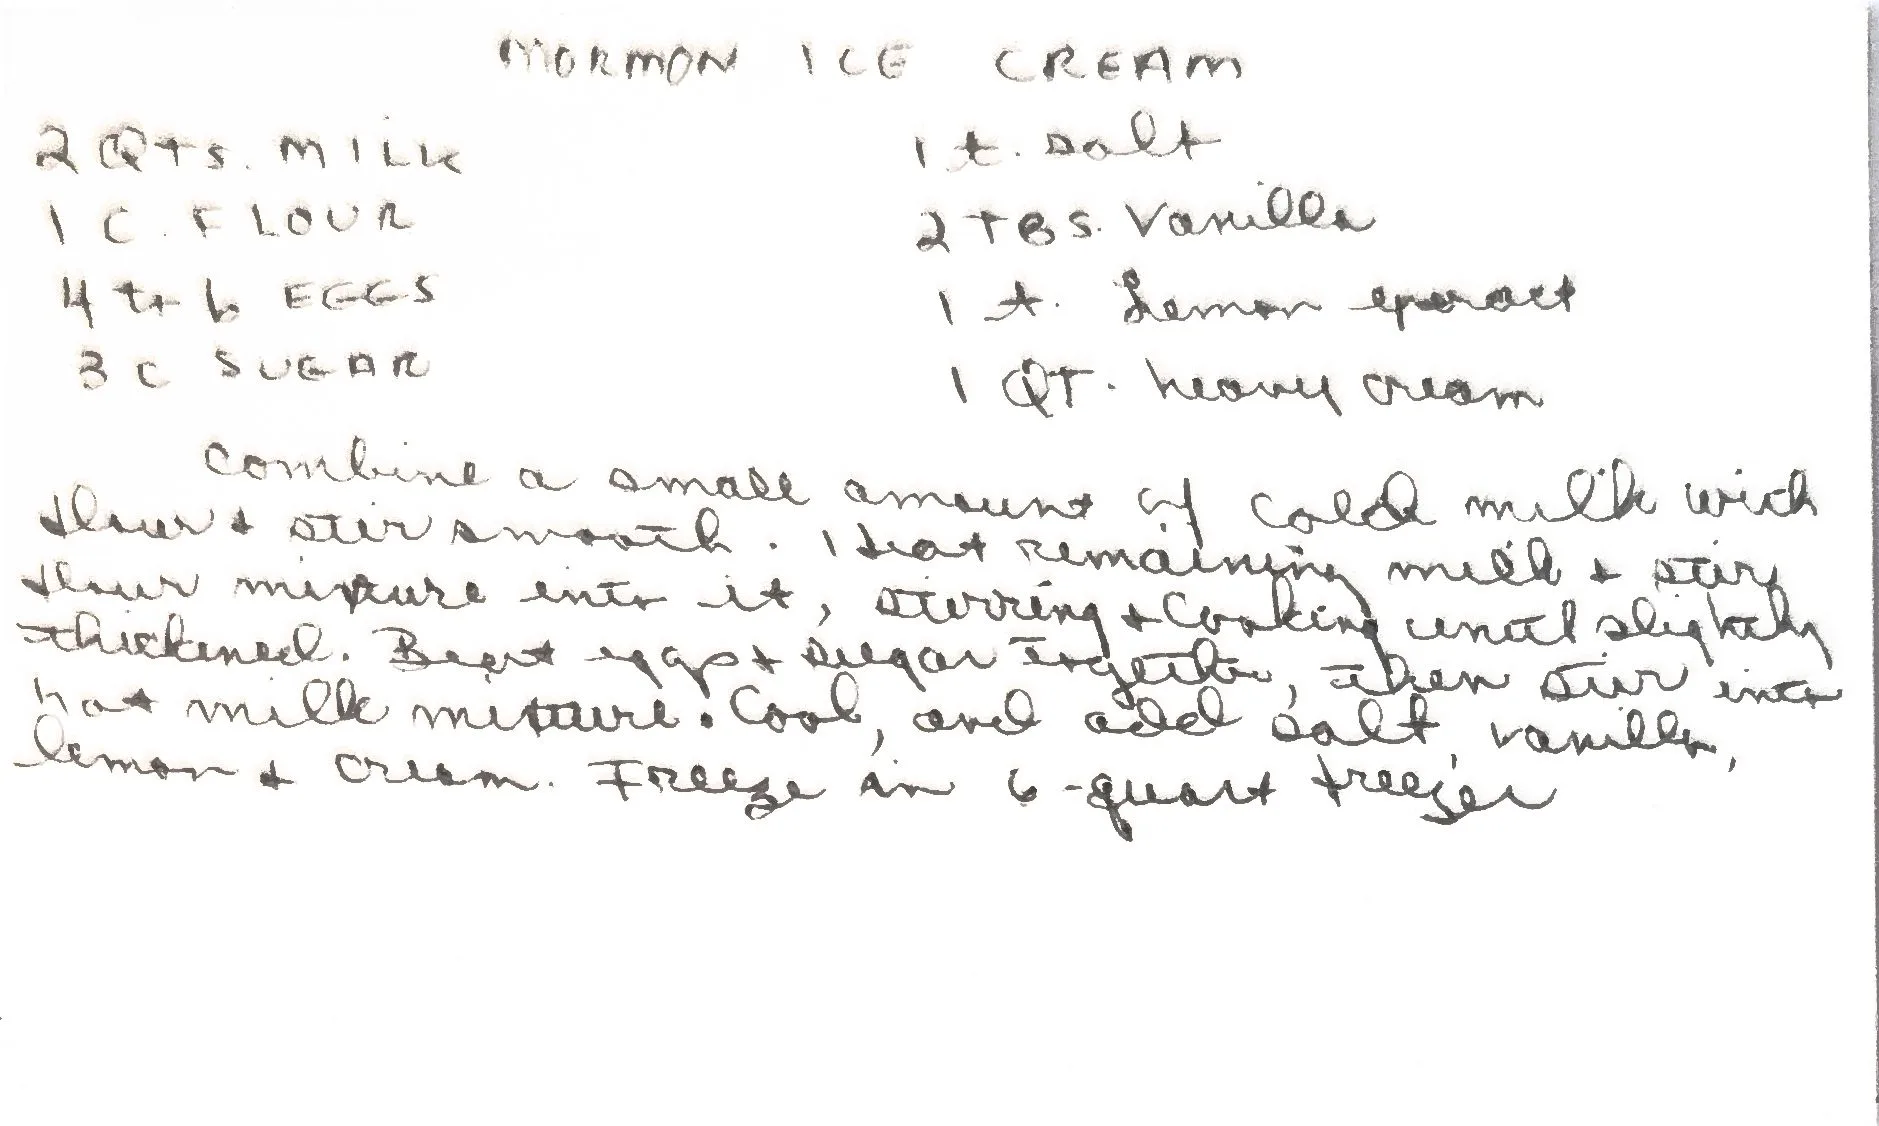 MORMON ICE CREAM
2 QTS. MILK
1 C. FLOUR
4 to 6 EGGS
3 C SUGAR
1 t. salt
2 TBS. Vanilla
1 t. Lemon extract
1 QT. heavy cream
Combine a small amount of cold milk with
flour & stir smooth. Heat remaining milk & stir
flour mixture into it, stirring & Cooking until slightly
thickened. Beat eggs & sugar together, then stir into
hot milk mixture. Cool, and add salt, vanilla,
lemon & cream. Freeze in 6-quart freezer